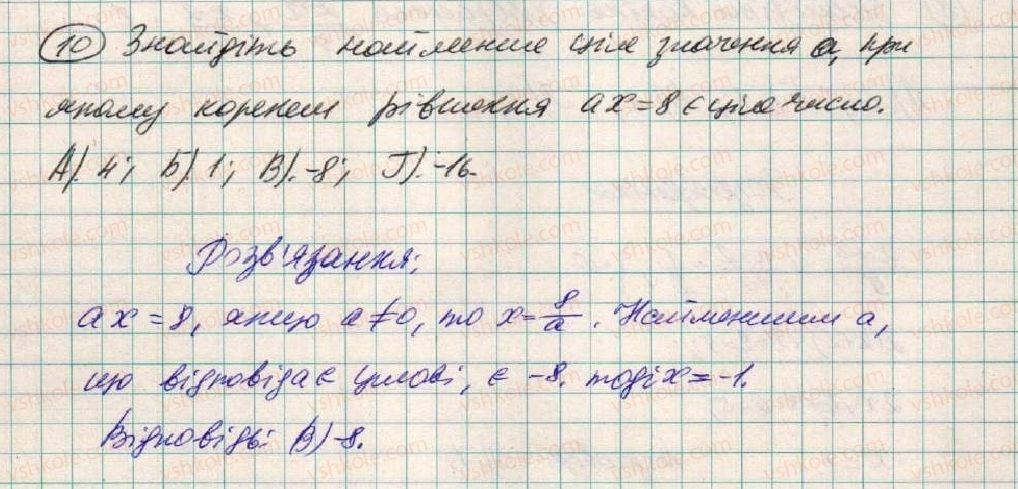 10 Знайдіть найменше ціле значення a, при
якому коренем рівняння ax=8 є ціле число.
А). 4; Б). 1; В). -8; Г). -16.
Розв'язання:
ax = 8, якщо a≠0, то x = 8/a. Найменшим a,
що відповідає умові, є -8. тоді x = -1.
Відповідь: В) -8.